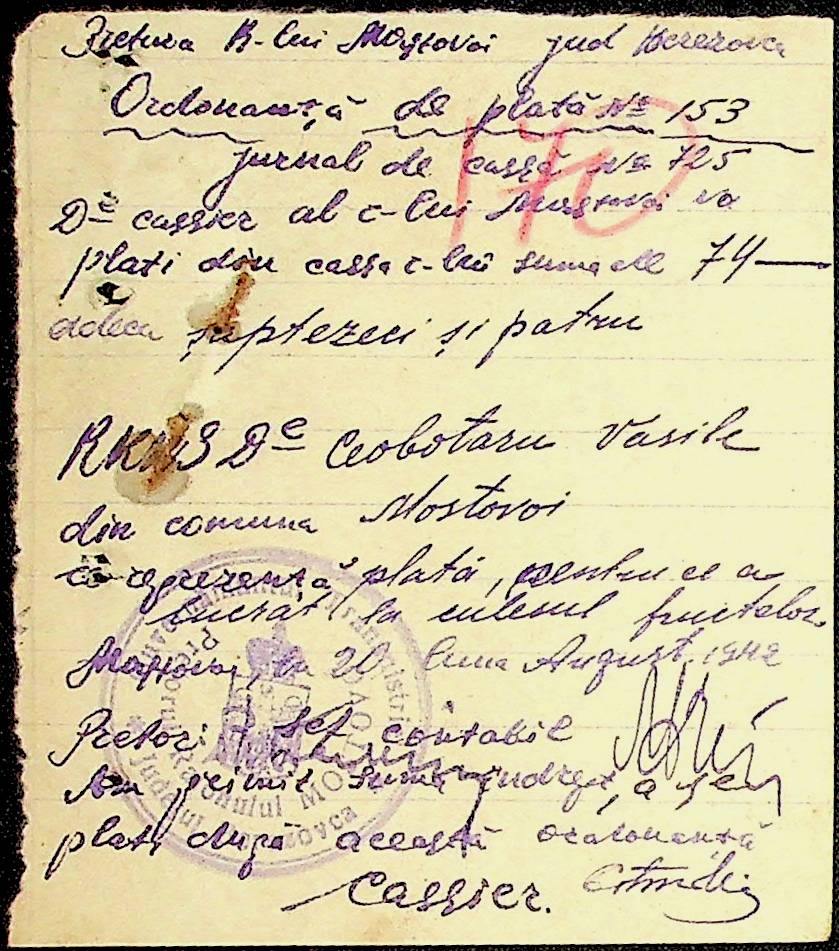 Pretura R-lui Mostovoi jud Berezovca
Ordonanță de plată № 153
jurnal de cassă № 725
170
Dl cassier al c-lui Mostovoi va
plati din cassa c-lui suma de 74 —
adeca șaptezeci și patru
RKMS Dl Ceobotaru Vasile
din comuna Mostovoi
ce reprezentă plată, pentru ce a
lucrat la culesul fructelor
Mostovoi, la 20 luna August 1942
Pretor Șef contabil
Am primit suma întregă, a se
plati după această ordonanță
Cassier.
Raionului MO
Județul Berezovca